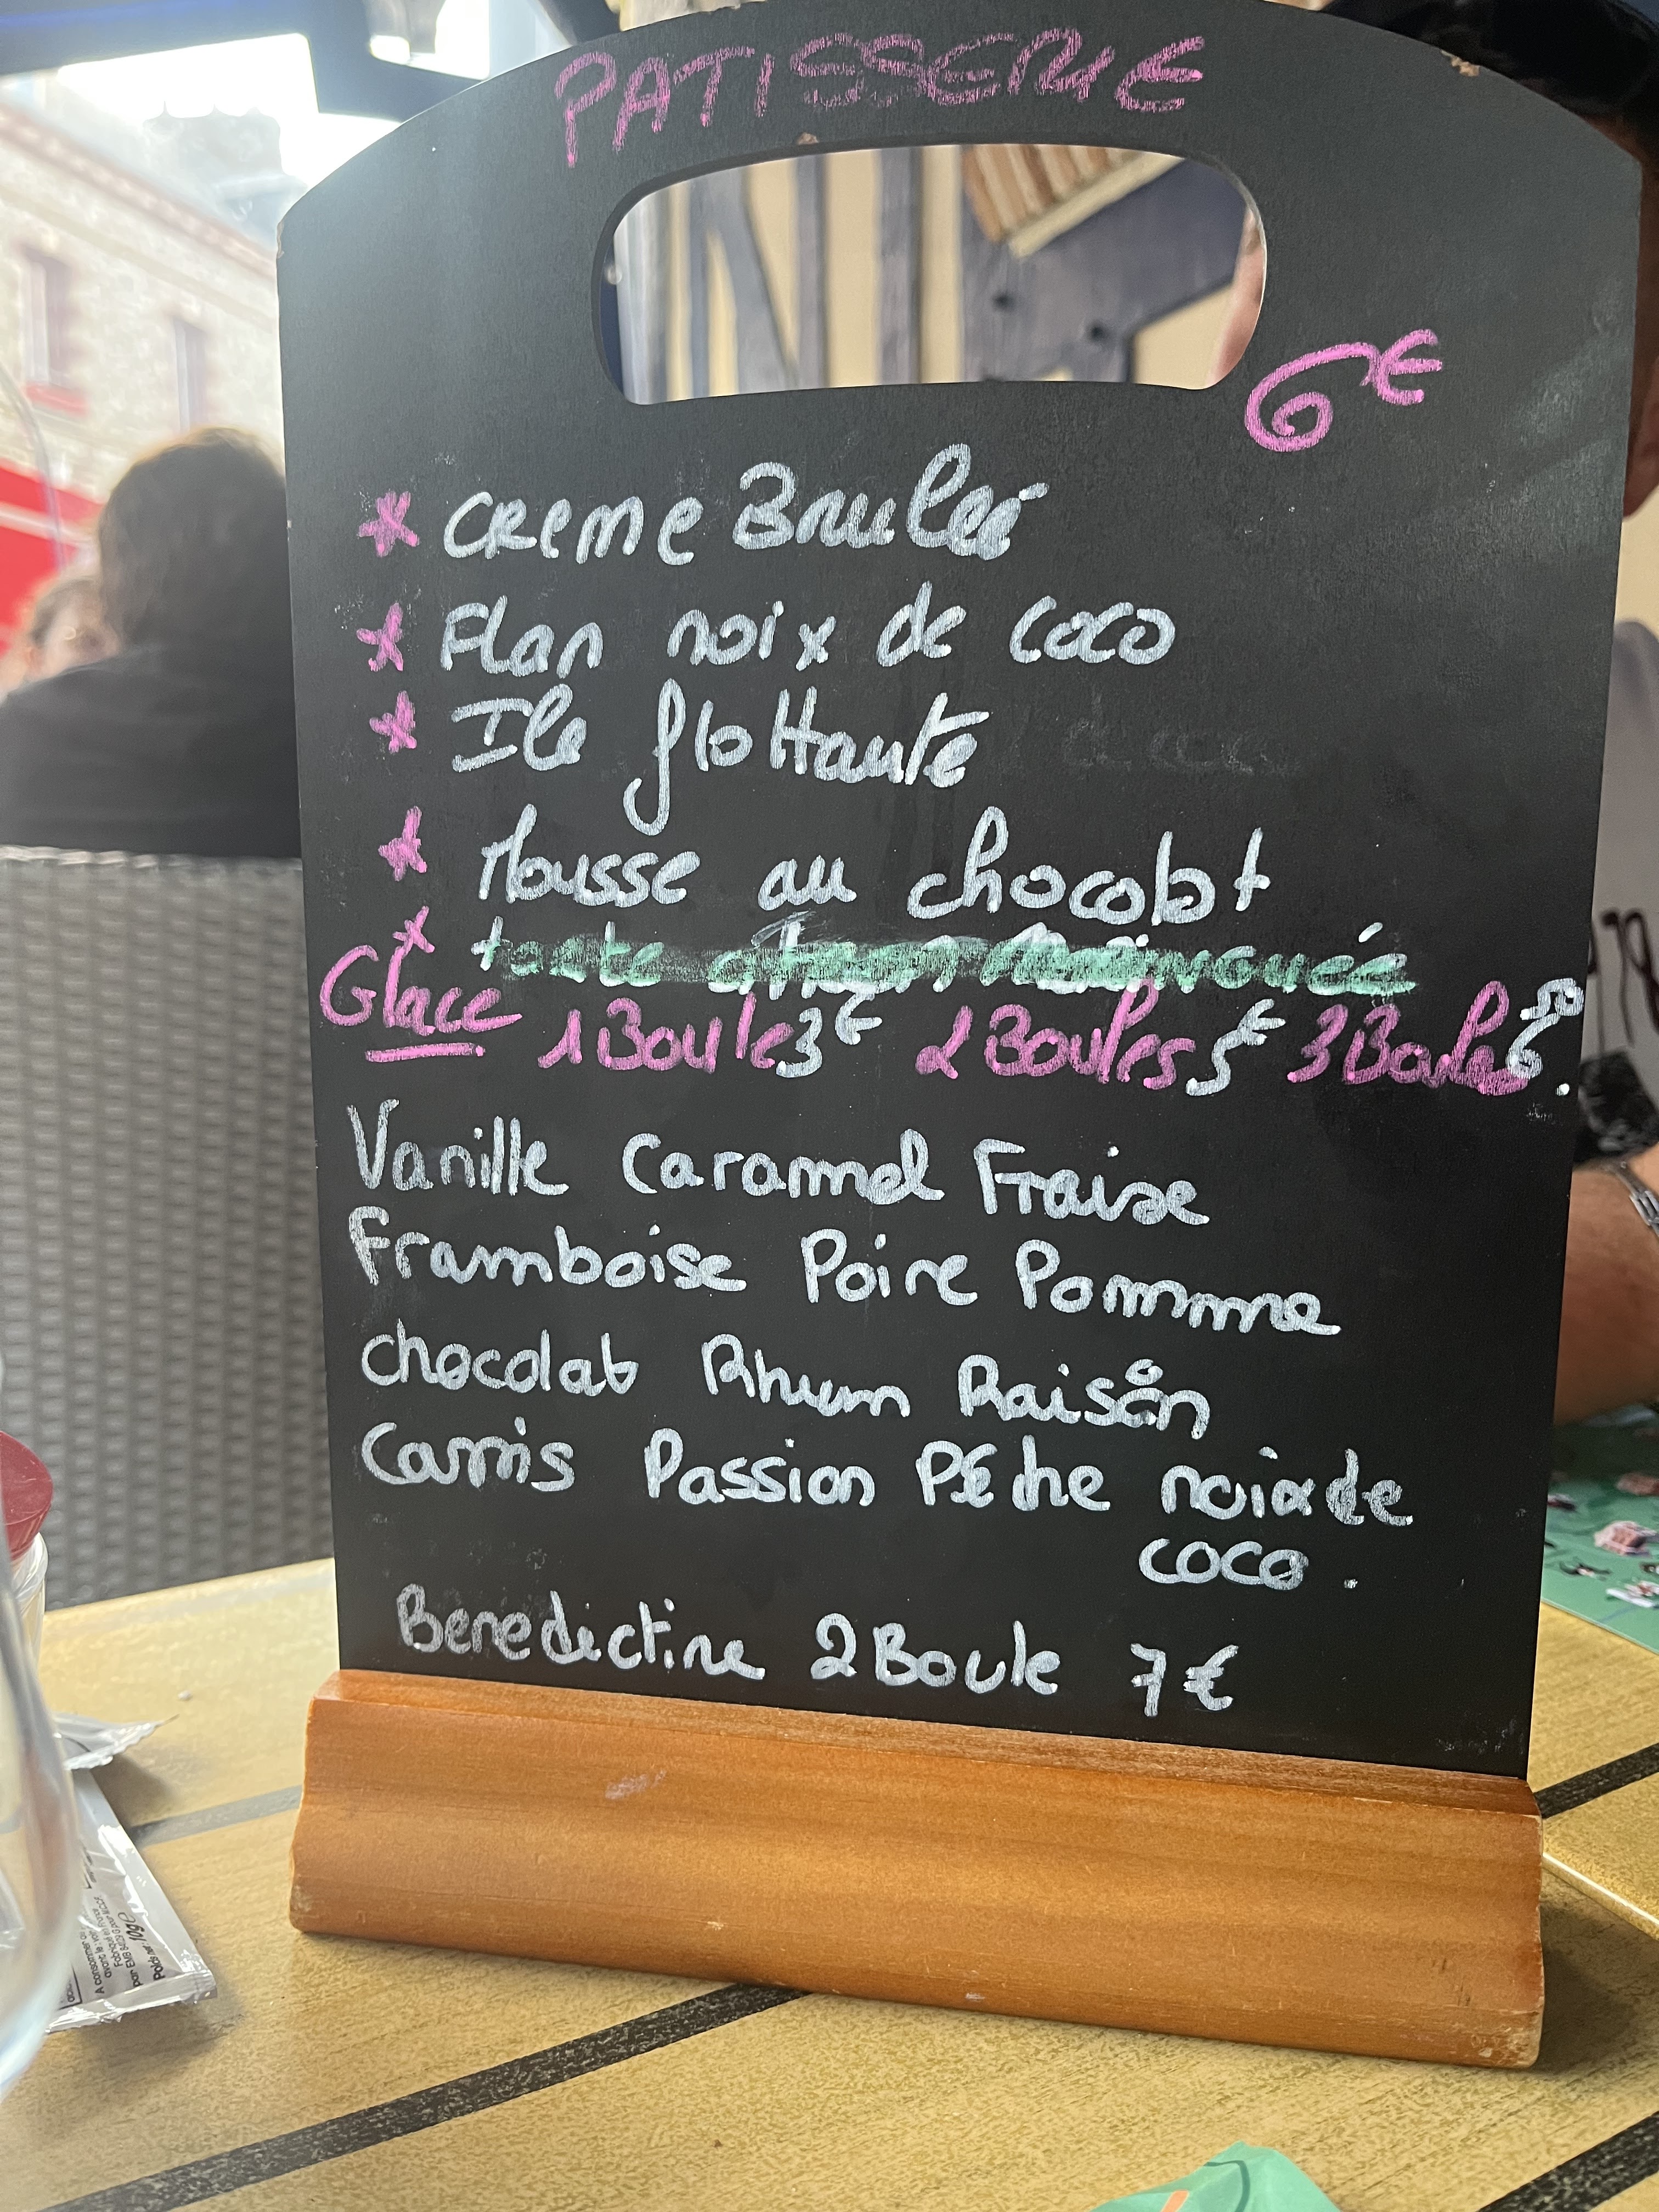 PATISSERIE
6€
* CREME Brulée
* Flan noix de coco
* Ile flottante
* Mousse au chocolat
* tarte citron meringuée
Glace 1 Boule 3€ 2 Boules 5€ 3 Boules 6€50.
Vanille Caramel Fraise
Framboise Poire Pomme
chocolat Rhum Raisin
Cassis Passion Pêche noix de
coco.
Benedictine 2 Boule 7€
Poids net: 10g e